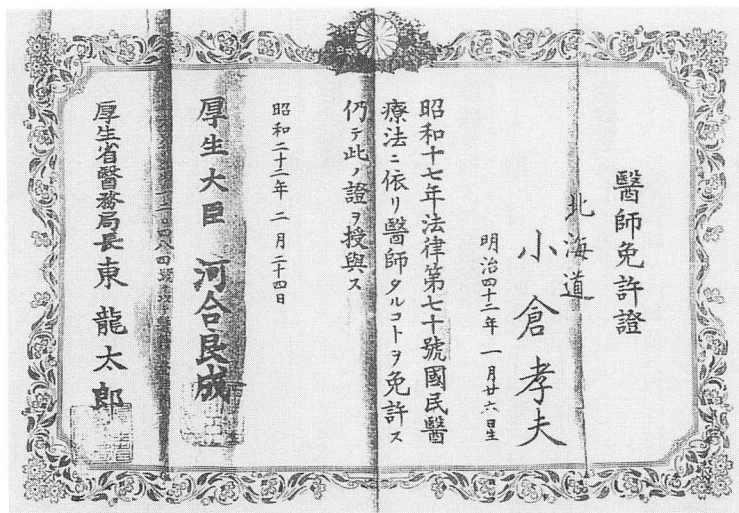 醫師免許證
北海道
小倉孝夫
明治四十二年一月廿六日生
昭和十七年法律第七十號國民醫
療法ニ依リ醫師タルコトヲ免許ス
仍テ此ノ證ヲ授與ス
昭和二十二年二月二十四日
厚生大臣 河合良成
厚生省醫務局長 東龍太郎